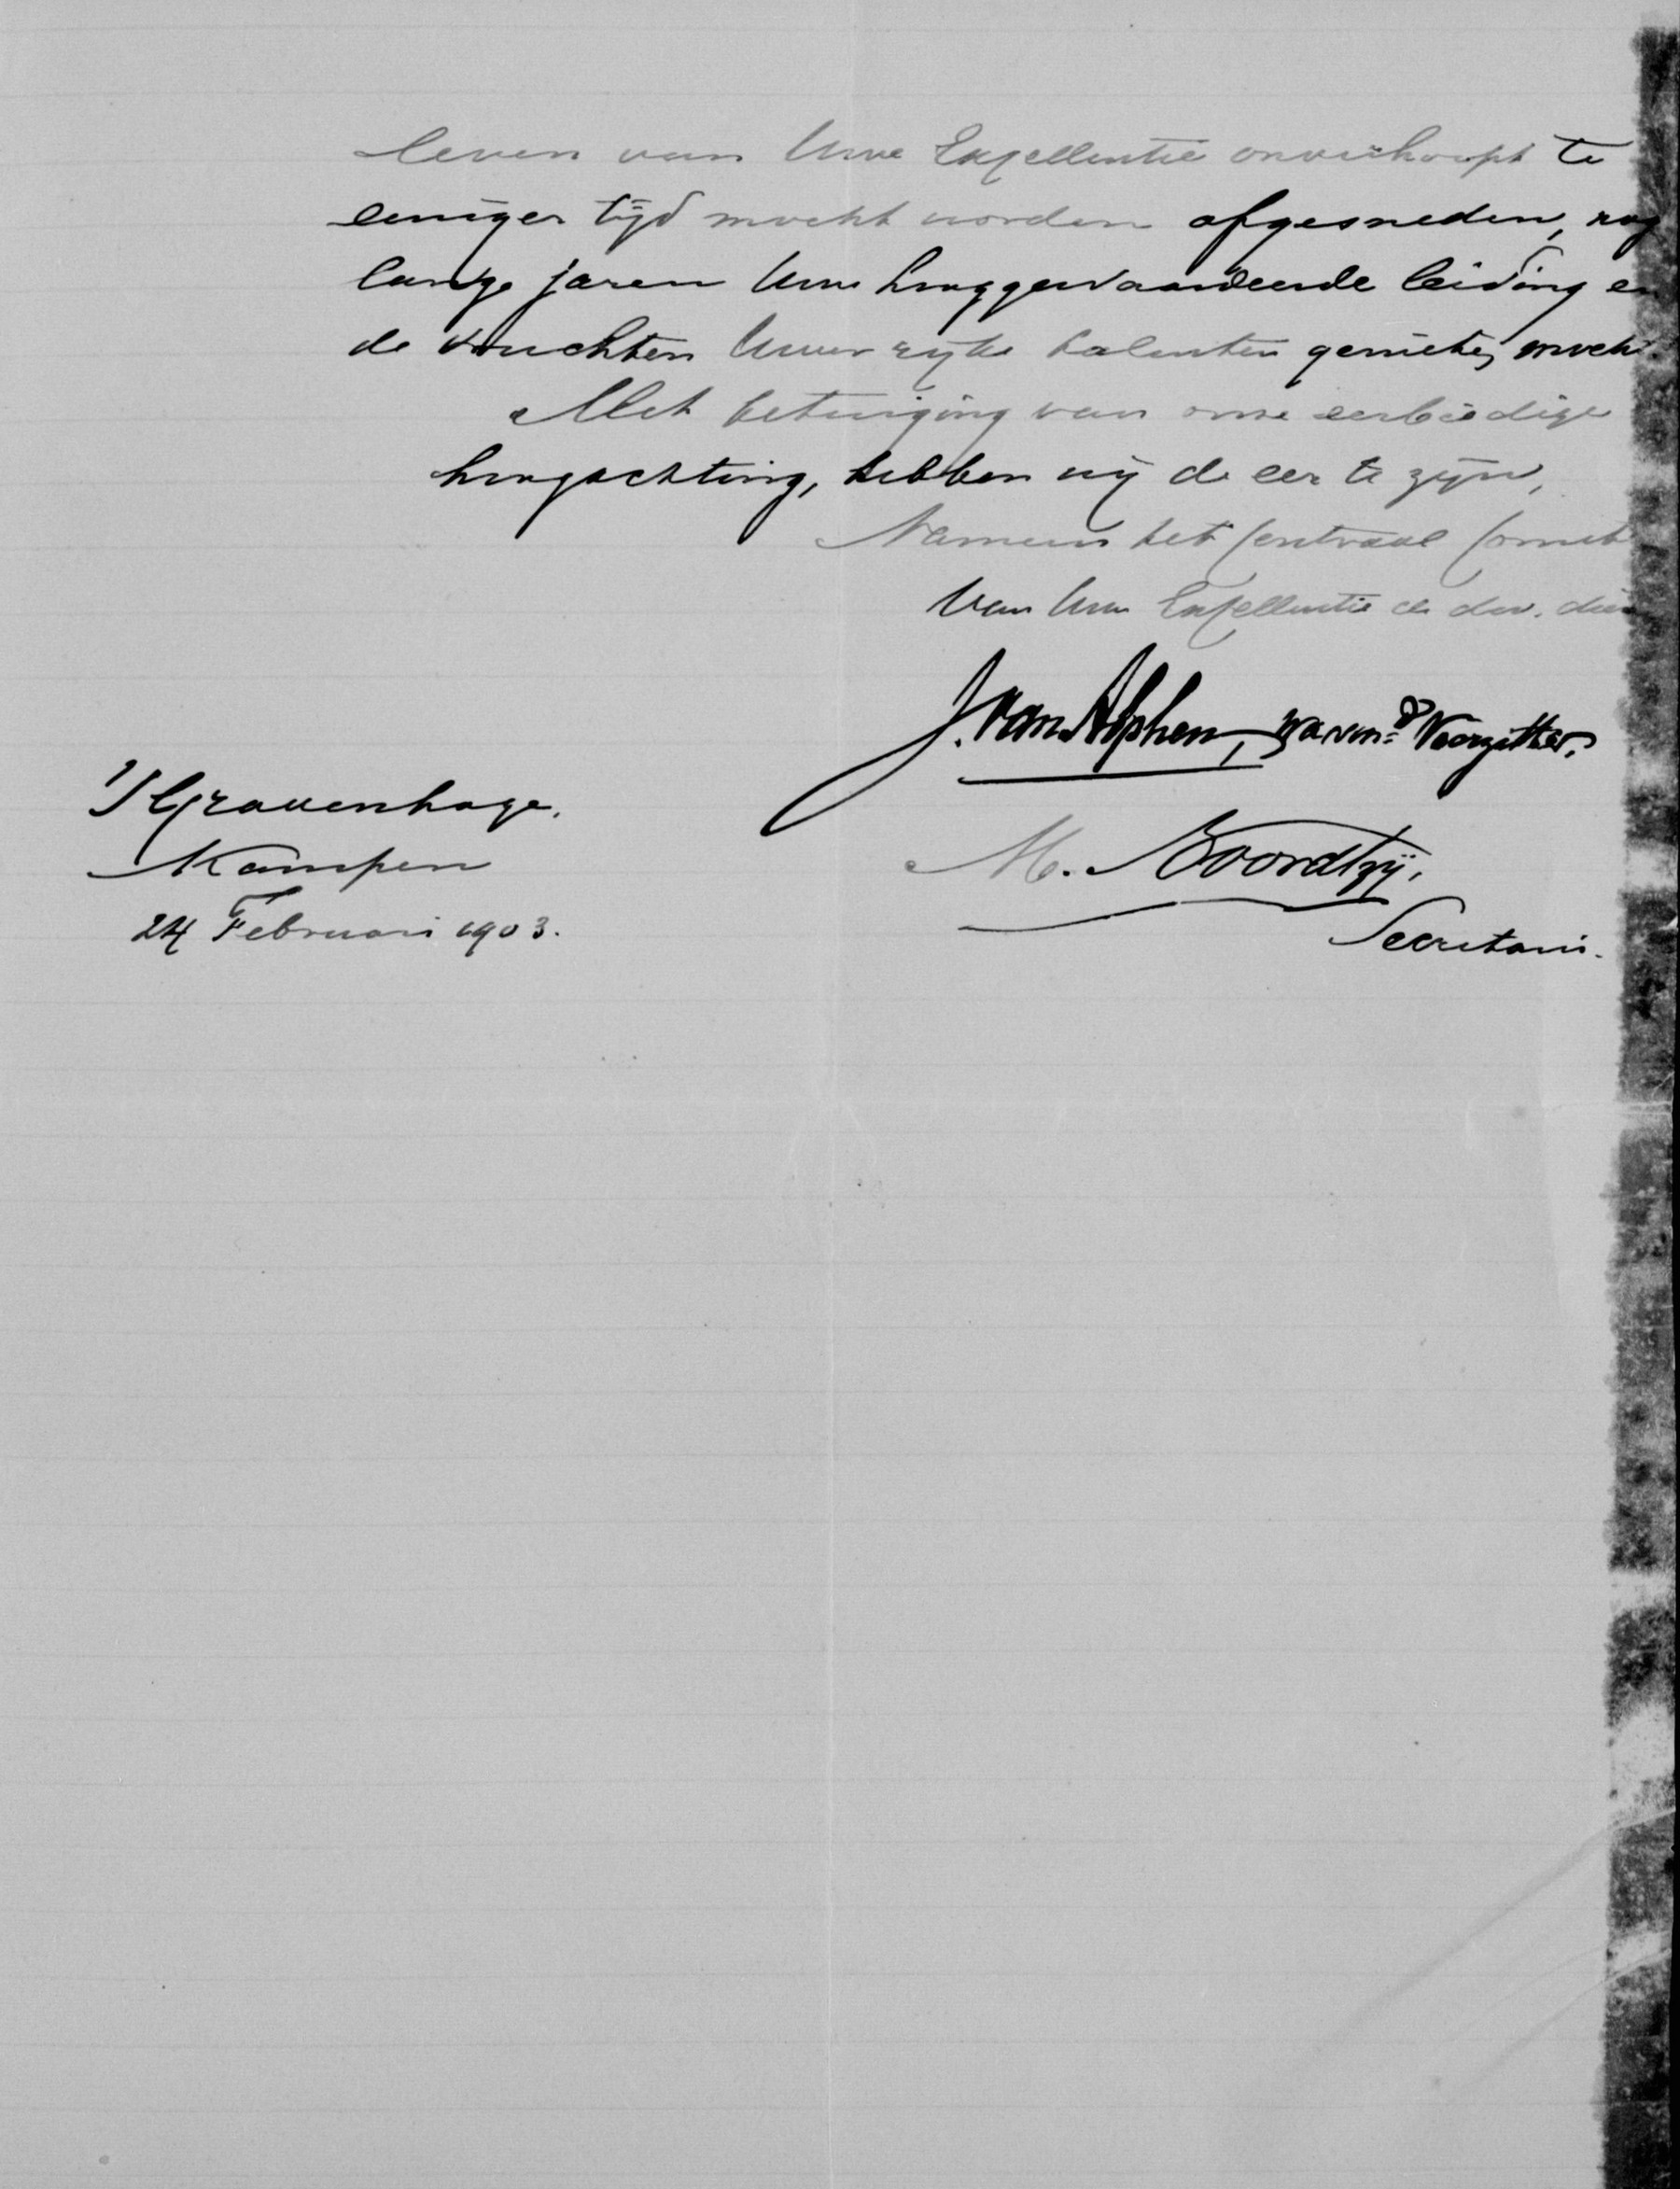 leven van Uwe Excellentie onverhoopt te
eeniger tijd mocht worden afgesneden, nog
lange jaren Uwe hooggewaardeerde leiding en
de vruchten Uwer rijke talenten genieten moch
Met betuiging van onze eerbiedige
hoogachting, hebben wij de eer te zijn,
Namens het Centraal Comit
Van Uwe Excellentie de dw. dien
J. van Alphen, waarn=d Voorzitter.
's Gravenhage.
Kampen
M. Noordtzij.
24 Februari 1903.
Secretaris.